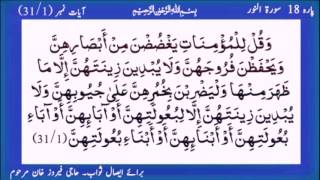 پارہ 18 سورۃ النور
بِسْمِ اللهِ الرَّحْمٰنِ الرَّحِيْمِ
آیات نمبر (31/1)
وَقُل لِّلْمُؤْمِنَاتِ يَغْضُضْنَ مِنْ أَبْصَارِهِنَّ
وَيَحْفَظْنَ فُرُوجَهُنَّ وَلَا يُبْدِينَ زِينَتَهُنَّ إِلَّا مَا
ظَهَرَ مِنْهَا وَلْيَضْرِبْنَ بِخُمُرِهِنَّ عَلَىٰ جُيُوبِهِنَّ وَلَا
يُبْدِينَ زِينَتَهُنَّ إِلَّا لِبُعُولَتِهِنَّ أَوْ آبَائِهِنَّ أَوْ آبَاءِ
بُعُولَتِهِنَّ أَوْ أَبْنَائِهِنَّ أَوْ أَبْنَاءِ بُعُولَتِهِنَّ (31/1)
برائے ایصال ثواب۔ حاجی فیروز خان مرحوم